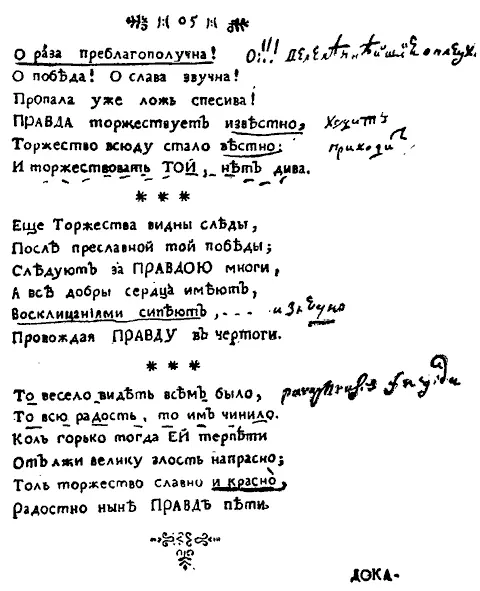 )( 05 )(
О раза преблагополучна! О!!!
О побѣда! О слава звучна!
Пропала уже ложь спесива!
ПРАВДА торжествуетъ извѣстно, ходитъ
Торжество всюду стало вѣстно; приходи
И торжествовать ТОЙ, нѣтъ дива.
* * *
Еще Торжества видны слѣды,
Послѣ преславной той побѣды;
Слѣдуютъ за ПРАВДОЮ многи,
А всѣ добры сердца имѣютъ,
Восклицаніями сипѣютъ,
Провождая ПРАВДУ въ чертоги.
* * *
То весело видѣть всѣмъ было, paraphrasis frigida
То всю радость, то имъ чинило.
Коль горько тогда ЕЙ терпѣти
Отъ лжи велику злость напрасно;
Толь торжество славно и красно,
Радостно нынѣ ПРАВДѢ пѣти.
ДОКА-